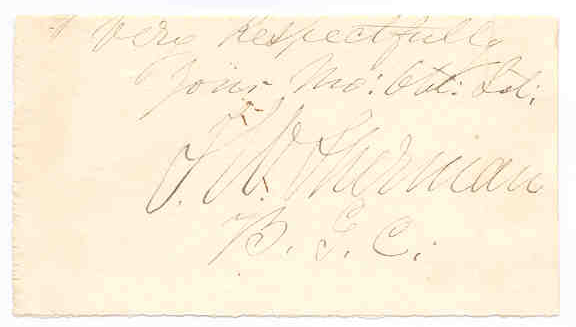 Very Respectfully
Your Mo: Obt: St:
T. W. Sherman
B. G. C.